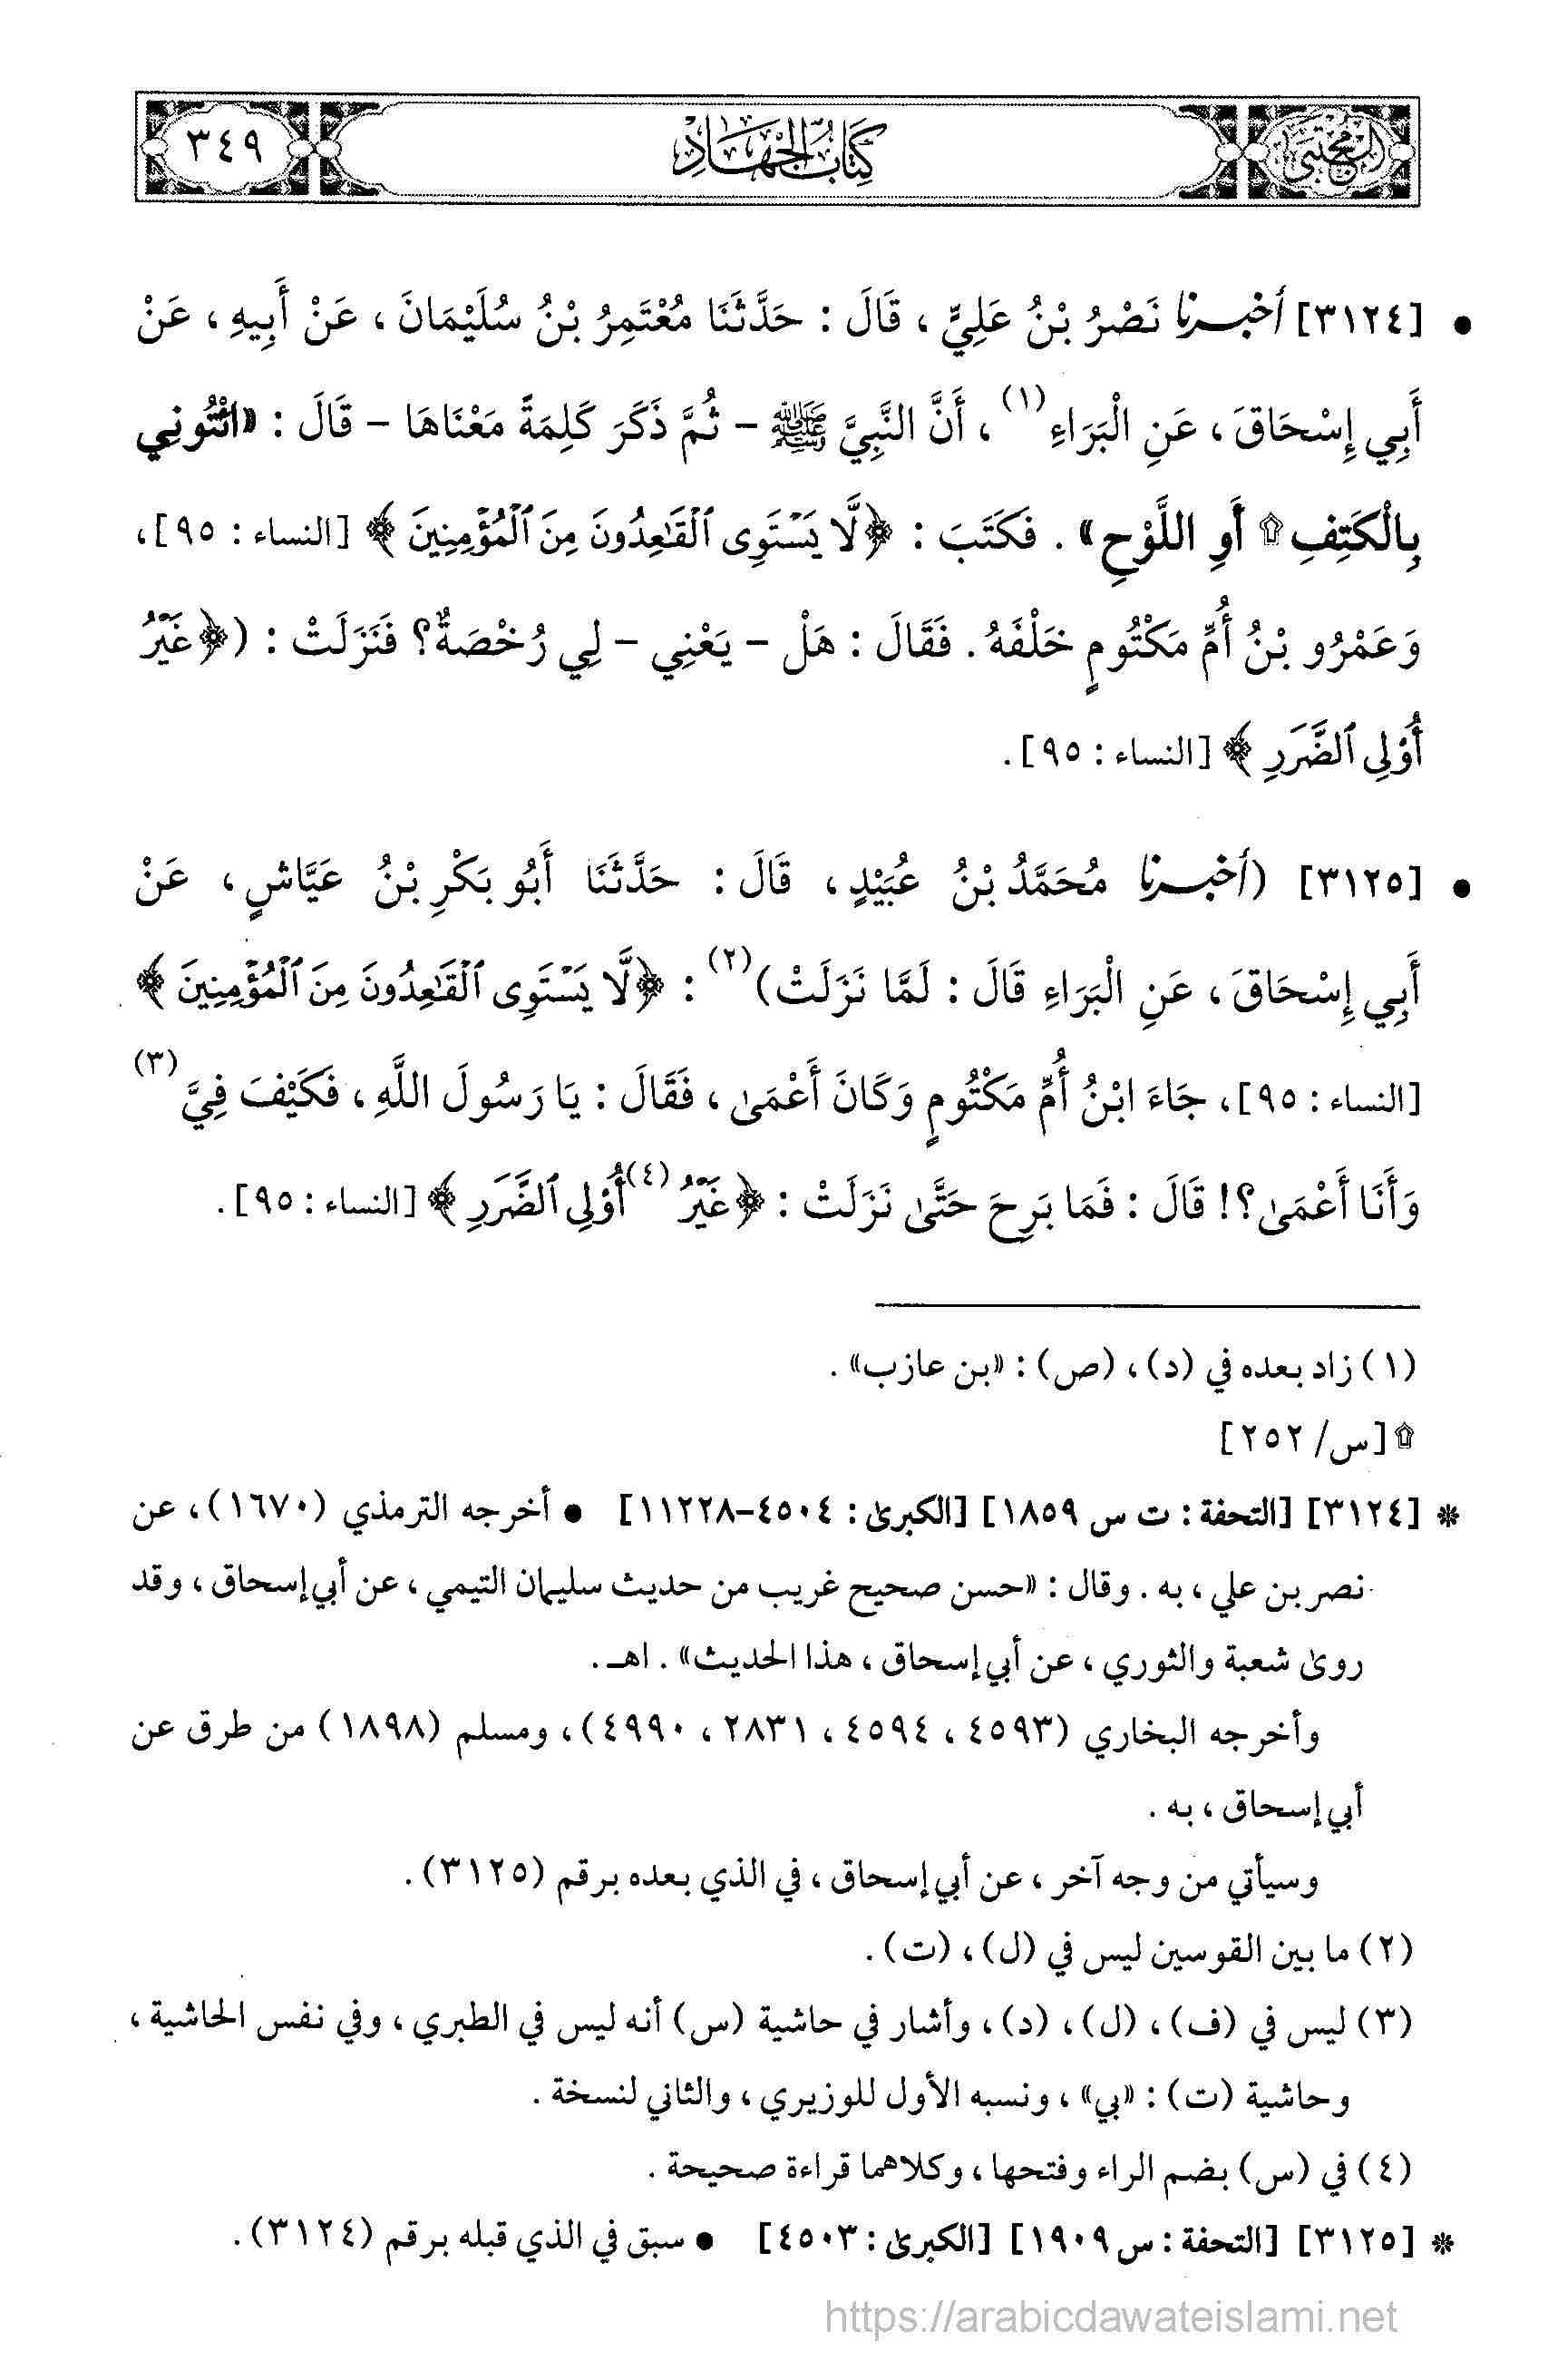 المجتبى
كتاب الجهاد
٣٤٩
• [٣١٢٤] أخبرنا نَصْرُ بْنُ عَلِيٍّ ، قَالَ : حَدَّثَنَا مُعْتَمِرُ بْنُ سُلَيْمَانَ ، عَنْ أَبِيهِ ، عَنْ
أَبِي إِسْحَاقَ ، عَنِ الْبَرَاءِ (١) ، أَنَّ النَّبِيَّ ﷺ - ثُمَّ ذَكَرَ كَلِمَةً مَعْنَاهَا - قَالَ : «ائْتُونِي
بِالْكَتِفِ ۩ أَوِ اللَّوْحِ» . فَكَتَبَ : ﴿لَّا يَسْتَوِى ٱلْقَٰعِدُونَ مِنَ ٱلْمُؤْمِنِينَ﴾ [النساء : ٩٥]،
وَعَمْرُو بْنُ أُمِّ مَكْتُومٍ خَلْفَهُ . فَقَالَ : هَلْ - يَعْنِي - لِي رُخْصَةٌ؟ فَنَزَلَتْ : (﴿غَيْرُ
أُوْلِى ٱلضَّرَرِ﴾ [النساء : ٩٥] .
• [٣١٢٥] (أخبرنا مُحَمَّدُ بْنُ عُبَيْدٍ ، قَالَ : حَدَّثَنَا أَبُو بَكْرِ بْنُ عَيَّاشٍ ، عَنْ
أَبِي إِسْحَاقَ ، عَنِ الْبَرَاءِ قَالَ : لَمَّا نَزَلَتْ) (٢) : ﴿لَّا يَسْتَوِى ٱلْقَٰعِدُونَ مِنَ ٱلْمُؤْمِنِينَ﴾
[النساء : ٩٥]، جَاءَ ابْنُ أُمِّ مَكْتُومٍ وَكَانَ أَعْمَىٰ ، فَقَالَ : يَا رَسُولَ اللَّهِ ، فَكَيْفَ فِيَّ (٣)
وَأَنَا أَعْمَىٰ؟! قَالَ : فَمَا بَرِحَ حَتَّىٰ نَزَلَتْ : ﴿غَيْرُ (٤) أُوْلِى ٱلضَّرَرِ﴾ [النساء : ٩٥] .
(١) زاد بعده في (د) ، (ص) : «بن عازب» .
۩ [س/ ٢٥٢]
* [٣١٢٤] [التحفة : ت س ١٨٥٩] [الكبرىٰ : ٤٥٠٤-١١٢٢٨] • أخرجه الترمذي (١٦٧٠) ، عن
نصر بن علي ، به . وقال : «حسن صحيح غريب من حديث سليمان التيمي ، عن أبي إسحاق ، وقد
روىٰ شعبة والثوري ، عن أبي إسحاق ، هذا الحديث» . اهـ .
وأخرجه البخاري (٤٥٩٣ ، ٤٥٩٤ ، ٢٨٣١ ، ٤٩٩٠) ، ومسلم (١٨٩٨) من طرق عن
أبي إسحاق ، به .
وسيأتي من وجه آخر ، عن أبي إسحاق ، في الذي بعده برقم (٣١٢٥) .
(٢) ما بين القوسين ليس في (ل) ، (ت) .
(٣) ليس في (ف) ، (ل) ، (د) ، وأشار في حاشية (س) أنه ليس في الطبري ، وفي نفس الحاشية ،
وحاشية (ت) : «بي» ، ونسبه الأول للوزيري ، والثاني لنسخة .
(٤) في (س) بضم الراء وفتحها ، وكلاهما قراءة صحيحة .
* [٣١٢٥] [التحفة : س ١٩٠٩] [الكبرىٰ : ٤٥٠٣] • سبق في الذي قبله برقم (٣١٢٤) .
https://arabicdawateislami.net